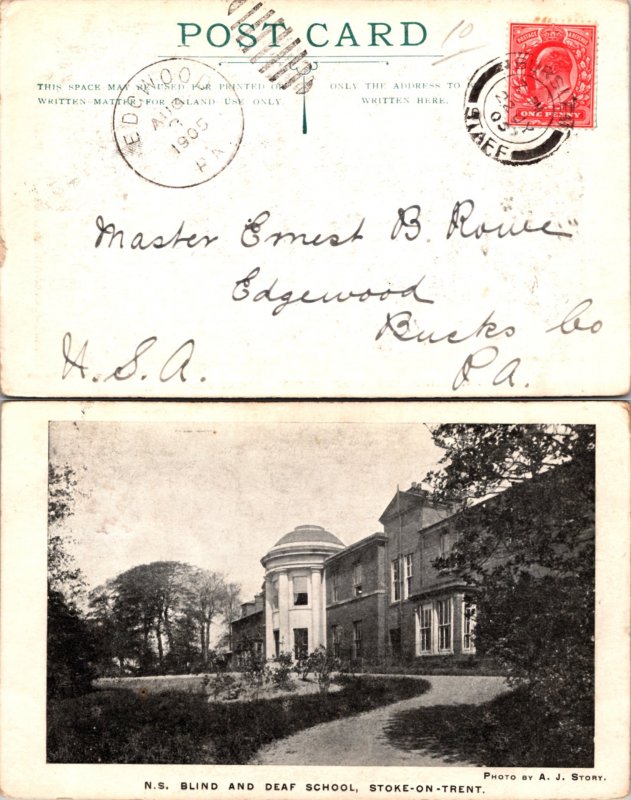 POST CARD
10
THIS SPACE MAY BE USED FOR PRINTED OR
WRITTEN MATTER FOR INLAND USE ONLY.
ONLY THE ADDRESS TO
WRITTEN HERE.
POSTAGE & REVENUE
ONE PENNY
EDGEWOOD
AUG
3
1905
PA.
Master Ernest B. Rowe
Edgewood
Bucks Co
U.S.A.
Pa.
PHOTO BY A. J. STORY.
N.S. BLIND AND DEAF SCHOOL, STOKE-ON-TRENT.